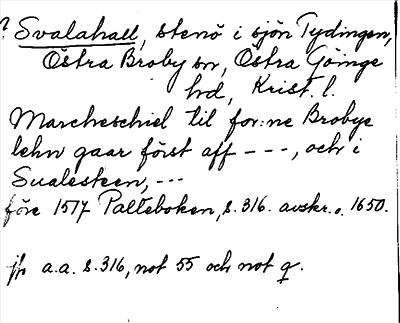 ? Svalahall, stenö i sjön Tydingen,
Östra Broby sn, Östra Göinge
hd, Krist. l.
Marcheschiel til for:ne Brobye
lehn gaar först aff - - -, och i
Sualesteen, - - -
före 1517 Palteboken, s. 316. avskr. o. 1650.
jfr a.a. s. 316, not 55 och not q.